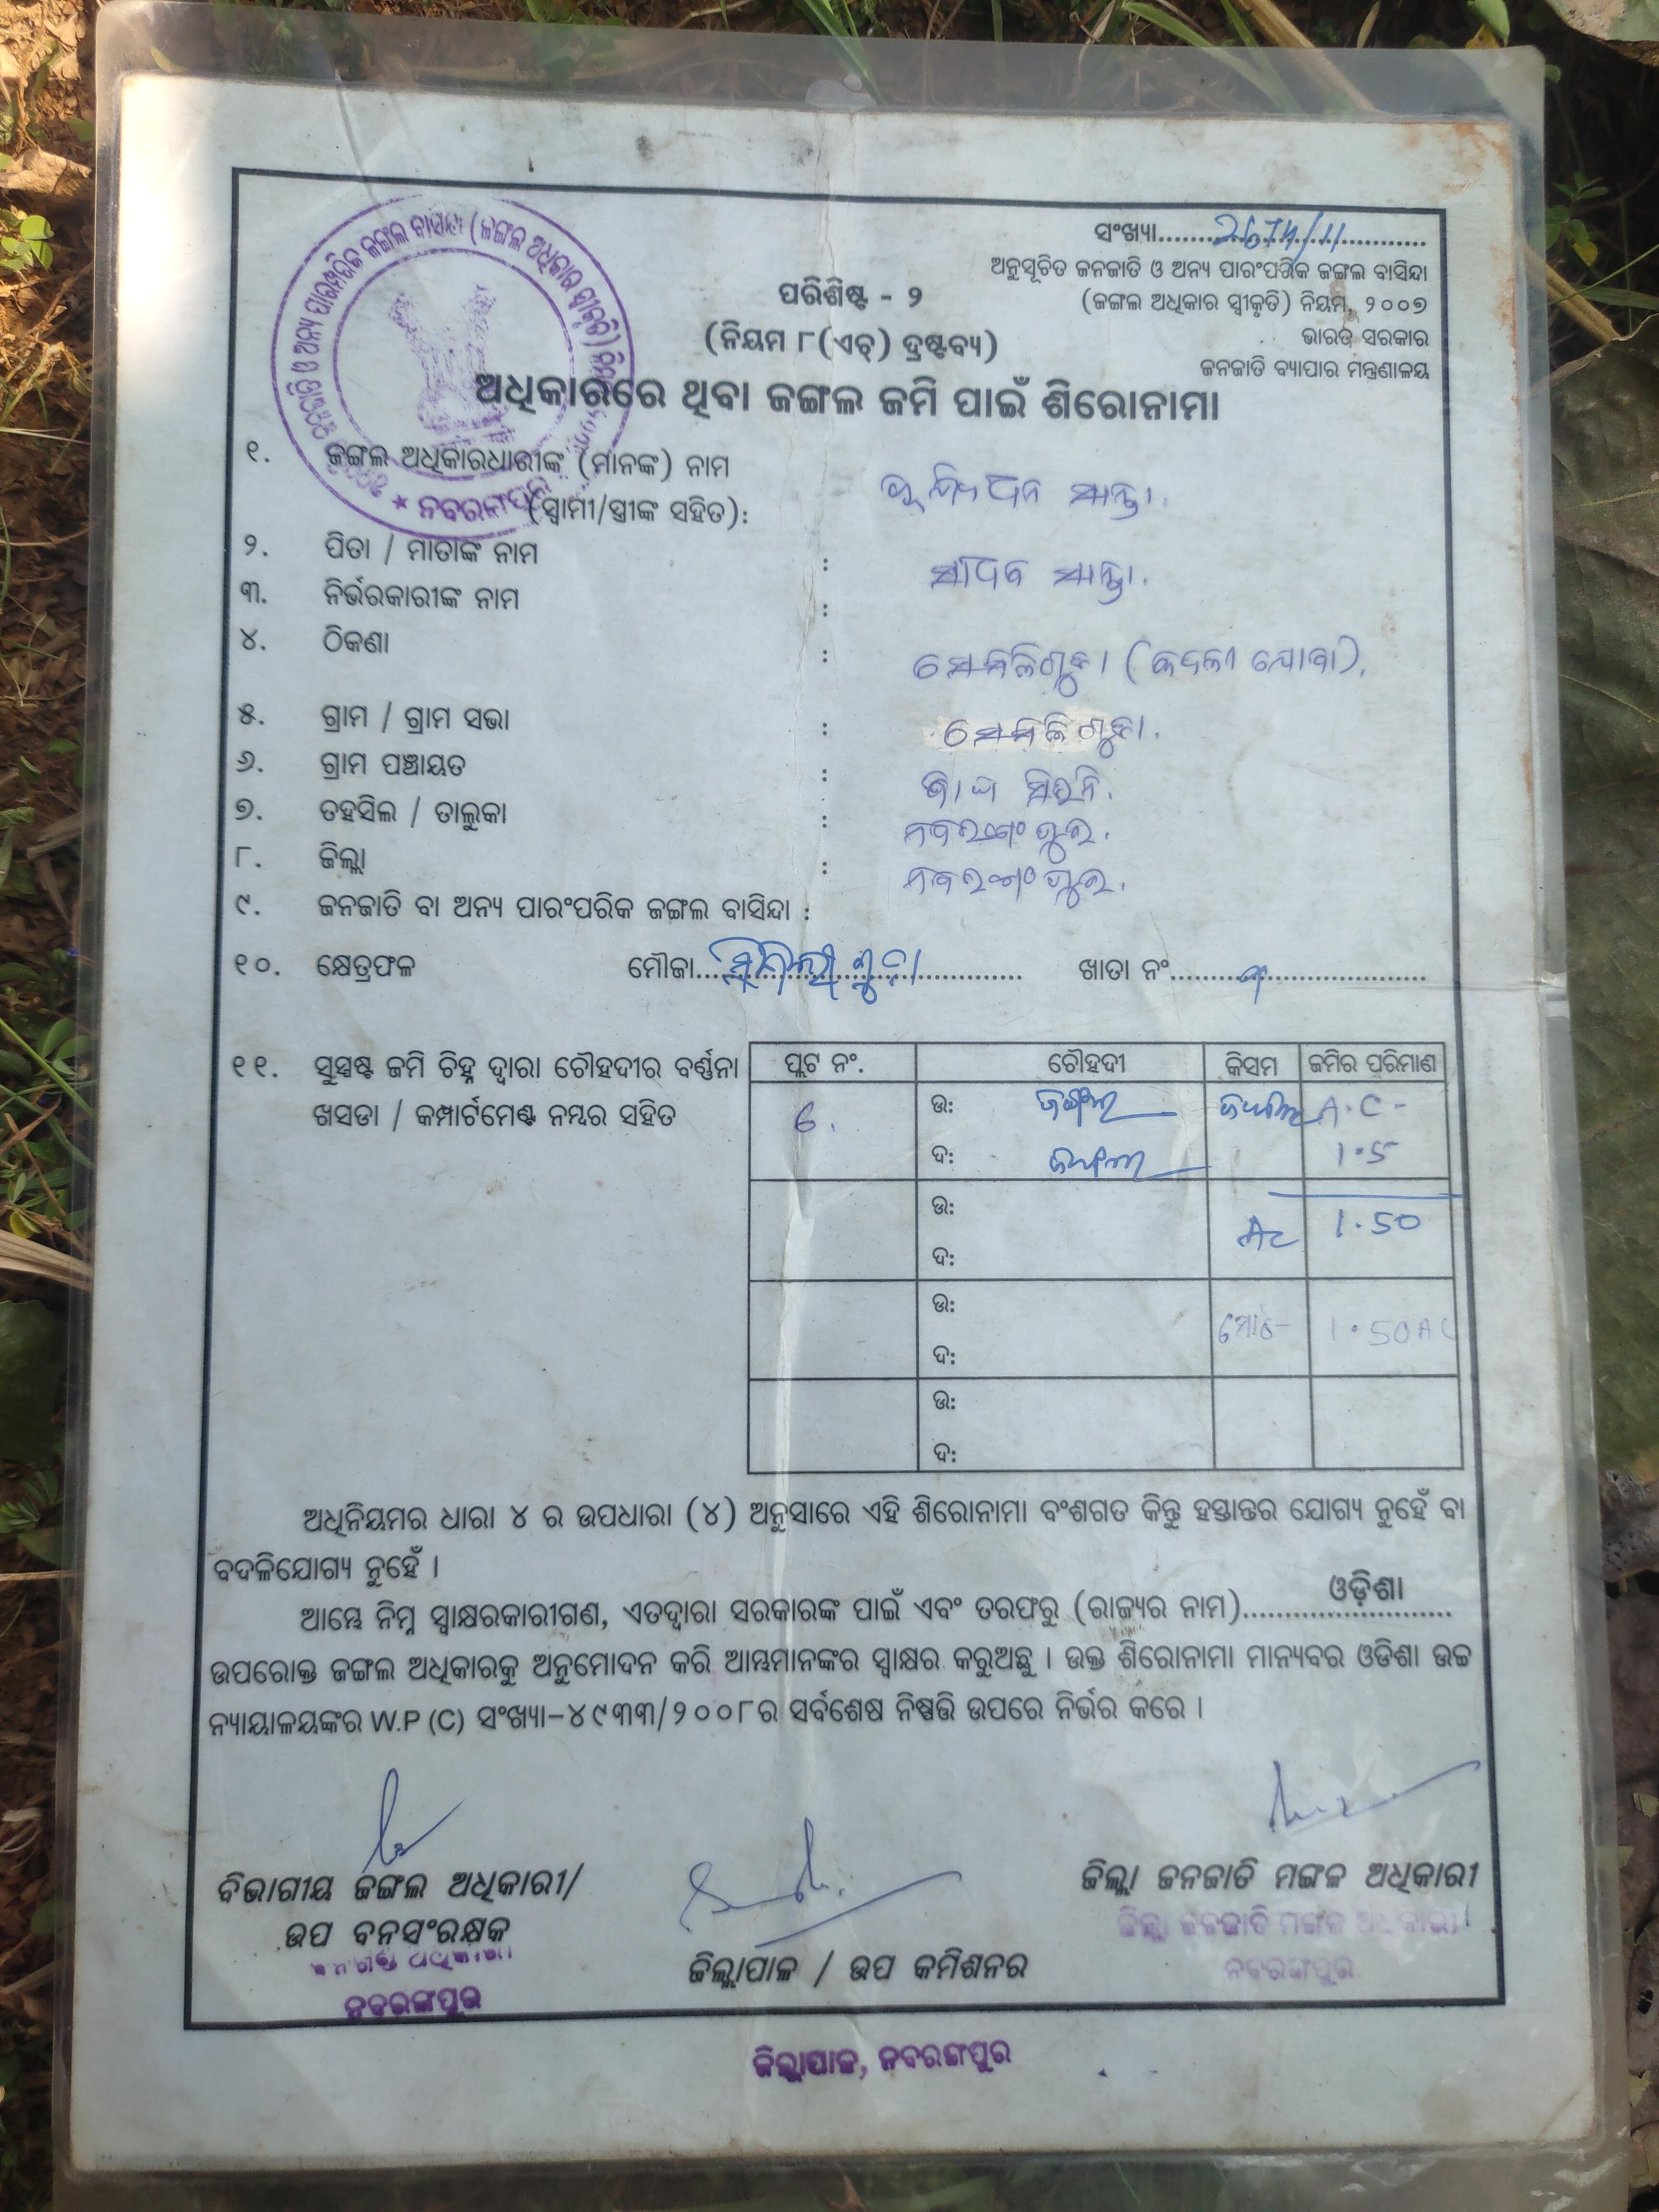 ସଂଖ୍ୟା....................................
ଅନୁସୂଚିତ ଜନଜାତି ଓ ଅନ୍ୟ ପାରଂପରିକ ଜଙ୍ଗଲ ବାସିନ୍ଦା
(ଜଙ୍ଗଲ ଅଧିକାର ସ୍ୱୀକୃତି) ନିୟମ, ୨୦୦୭
ଭାରତ ସରକାର
ଜନଜାତି ବ୍ୟାପାର ମନ୍ତ୍ରଣାଳୟ
ପରିଶିଷ୍ଟ - ୨
(ନିୟମ ୮(ଏଚ୍) ଦ୍ରଷ୍ଟବ୍ୟ)
ଅଧିକାରରେ ଥିବା ଜଙ୍ଗଲ ଜମି ପାଇଁ ଶିରୋନାମା
୧. ଜଙ୍ଗଲ ଅଧିକାରଧାରୀଙ୍କ (ମାନଙ୍କ) ନାମ
(ସ୍ୱାମୀ/ସ୍ତ୍ରୀଙ୍କ ସହିତ):
୨. ପିତା / ମାତାଙ୍କ ନାମ :
୩. ନିର୍ଭରକାରୀଙ୍କ ନାମ :
୪. ଠିକଣା :
୫. ଗ୍ରାମ / ଗ୍ରାମ ସଭା :
୬. ଗ୍ରାମ ପଞ୍ଚାୟତ :
୭. ତହସିଲ / ତାଲୁକା : ନବରଙ୍ଗପୁର.
୮. ଜିଲ୍ଲା : ନବରଙ୍ଗପୁର.
୯. ଜନଜାତି ବା ଅନ୍ୟ ପାରଂପରିକ ଜଙ୍ଗଲ ବାସିନ୍ଦା :
୧୦. କ୍ଷେତ୍ରଫଳ ମୌଜା.................................... ଖାତା ନଂ....................................
୧୧. ସୁସ୍ପଷ୍ଟ ଜମି ଚିହ୍ନ ଦ୍ୱାରା ଚୌହଦୀର ବର୍ଣ୍ଣନା
ଖସଡା / କମ୍ପାର୍ଟମେଣ୍ଟ ନମ୍ବର ସହିତ
ପ୍ଲଟ ନଂ. ଚୌହଦୀ କିସମ ଜମିର ପରିମାଣ
6. ଉ: ଜଙ୍ଗଲ A.C -
ଦ: ଜଙ୍ଗଲ 1.5
ଉ: Ac 1.50
ଦ:
ଉ: ମୋଟ- 1.50 AC
ଦ:
ଉ:
ଦ:
ଅଧିନିୟମର ଧାରା ୪ ର ଉପଧାରା (୪) ଅନୁସାରେ ଏହି ଶିରୋନାମା ବଂଶଗତ କିନ୍ତୁ ହସ୍ତାନ୍ତର ଯୋଗ୍ୟ ନୁହେଁ ବା
ବଦଳିଯୋଗ୍ୟ ନୁହେଁ ।
ଆମ୍ଭେ ନିମ୍ନ ସ୍ୱାକ୍ଷରକାରୀଗଣ, ଏତଦ୍ୱାରା ସରକାରଙ୍କ ପାଇଁ ଏବଂ ତରଫରୁ (ରାଜ୍ୟର ନାମ)......ଓଡ଼ିଶା......
ଉପରୋକ୍ତ ଜଙ୍ଗଲ ଅଧିକାରକୁ ଅନୁମୋଦନ କରି ଆମ୍ଭମାନଙ୍କର ସ୍ୱାକ୍ଷର କରୁଅଛୁ । ଉକ୍ତ ଶିରୋନାମା ମାନ୍ୟବର ଓଡିଶା ଉଚ୍ଚ
ନ୍ୟାୟାଳୟଙ୍କର W.P (C) ସଂଖ୍ୟା-୪୯୩୩/୨୦୦୮ର ସର୍ବଶେଷ ନିଷ୍ପତ୍ତି ଉପରେ ନିର୍ଭର କରେ ।
ବିଭାଗୀୟ ଜଙ୍ଗଲ ଅଧିକାରୀ/
ଉପ ବନସଂରକ୍ଷକ
ନବରଙ୍ଗପୁର
ଜିଲ୍ଲାପାଳ / ଉପ କମିଶନର
ଜିଲ୍ଲା ଜନଜାତି ମଙ୍ଗଳ ଅଧିକାରୀ
ଜିଲ୍ଲା ଜନଜାତି ମଙ୍ଗଳ ଅଧିକାରୀ
ନବରଙ୍ଗପୁର
ଜିଲ୍ଲାପାଳ, ନବରଙ୍ଗପୁର